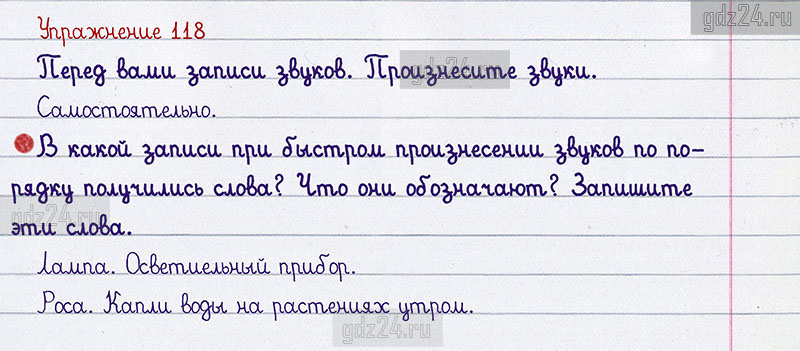 gdz24.ru
Упражнение 118
Перед вами записи звуков. Произнесите звуки.
gdz24.ru
Самостоятельно.
В какой записи при быстром произнесении звуков по по-
рядку получились слова? Что они обозначают? Запишите
gdz24.ru
эти слова.
Лампа. Осветиельный прибор.
Роса. Капли воды на растениях утром.
gdz24.ru